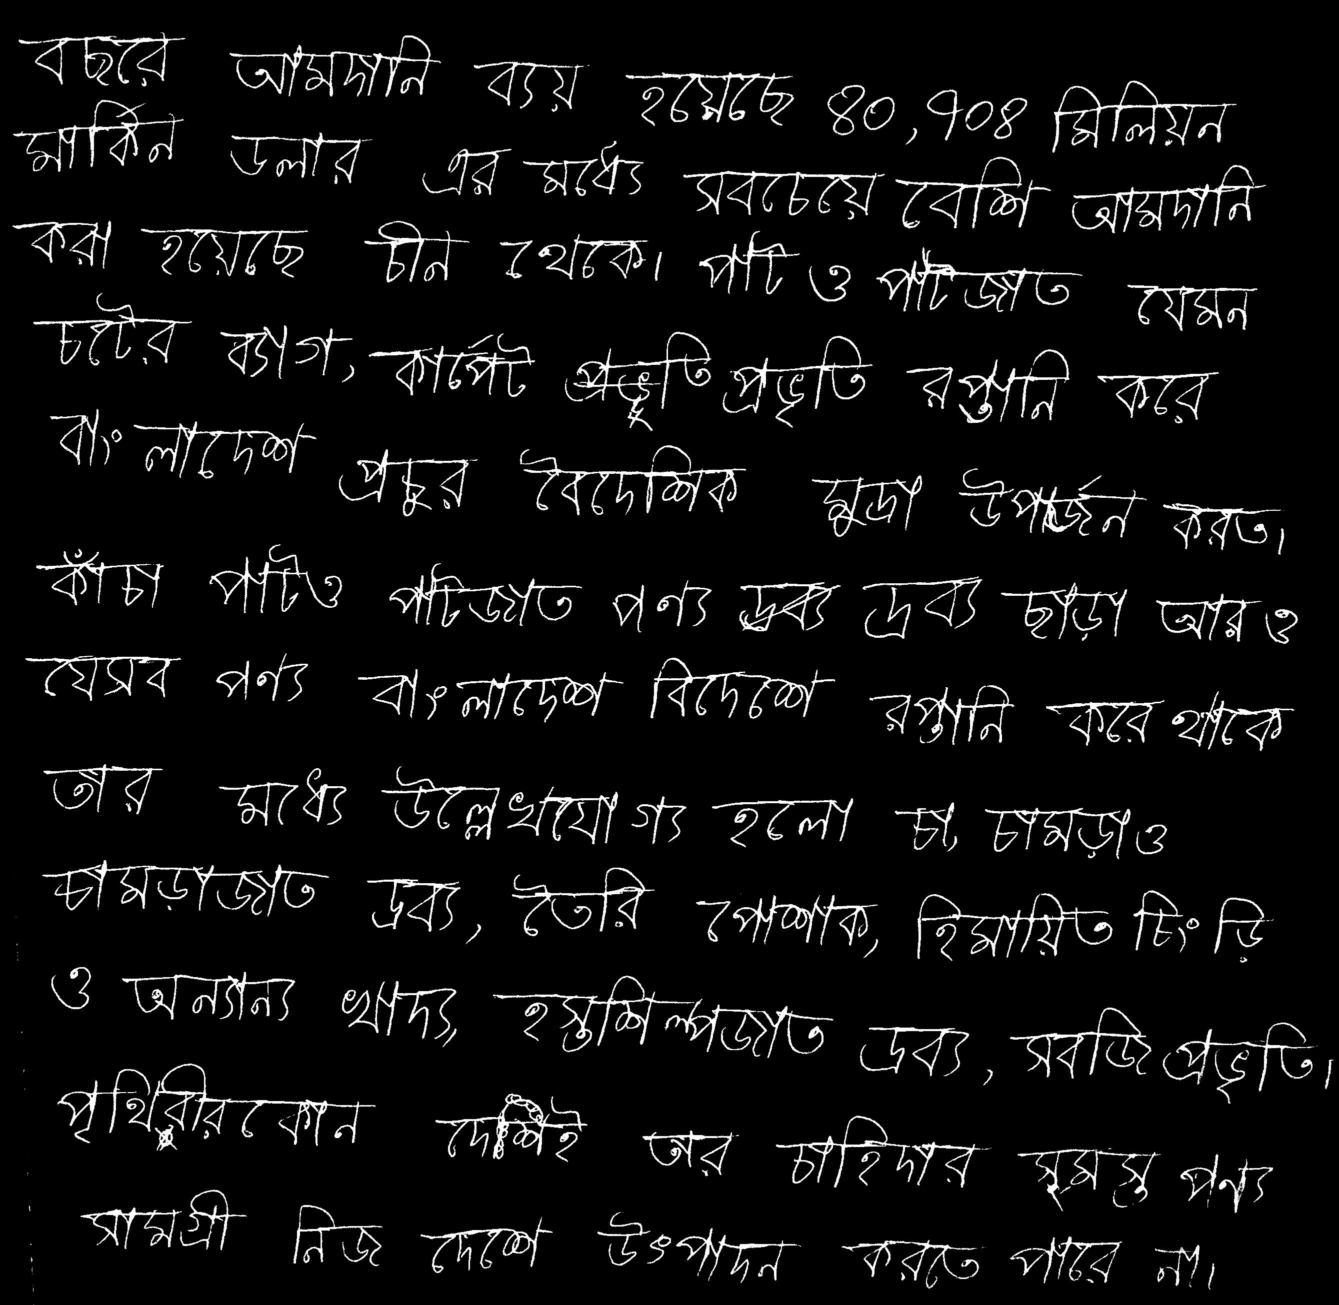 বছরে আমদানি ব্যয় হয়েছে ৪০,৭০৪ মিলিয়ন
মার্কিন ডলার এর মধ্যে সবচেয়ে বেশি আমদানি
করা হয়েছে চীন থেকে। পাট ও পাটজাত যেমন
চটের ব্যাগ, কার্পেট প্রভৃতি রপ্তানি করে
বাংলাদেশ প্রচুর বৈদেশিক মুদ্রা উপার্জন করত।
কাঁচা পাটও পাটজাত পণ্য দ্রব্য ছাড়া আরও
যেসব পণ্য বাংলাদেশ বিদেশে রপ্তানি করে থাকে
তার মধ্যে উল্লেখযোগ্য হলো চা, চামড়াও
চামড়াজাত দ্রব্য, তৈরি পোশাক, হিমায়িত চিংড়ি
ও অন্যান্য খাদ্য, হস্তশিল্পজাত দ্রব্য, সবজি প্রভৃতি।
পৃথিবীর কোন দেশই তার চাহিদার সমস্ত পণ্য
সামগ্রী নিজ দেশে উৎপাদন করতে পারে না।